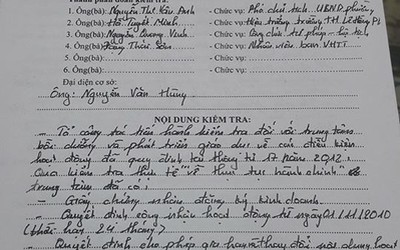 Thành phần đoàn kiểm tra:
1. Ông(bà): Nguyễn Thị Vân Anh - Chức vụ: Phó chủ tịch UBND phường
2. Ông(bà): Hồ Tuyết Minh - Chức vụ: Hiệu trưởng trường TH Lê Đồng
3. Ông(bà): Nguyễn Quang Vinh - Chức vụ: Công chức tư pháp - hộ tịch
4. Ông(bà): - Chức vụ: Nhân viên ban VHTT
5. Ông(bà): - Chức vụ:
6. Ông(bà): - Chức vụ:
Đại diện cơ sở:
Ông: Nguyễn Văn Hùng
NỘI DUNG KIỂM TRA:
- Tổ công tác tiến hành kiểm tra đối với trung tâm
bồi dưỡng và phát triển giáo dục về các điều kiện
hoạt động đã quy định tại thông tư 17 năm 2012.
Qua kiểm tra thực tế về thủ tục hành chính
trung tâm đã có:
- Giấy chứng nhận đăng ký kinh doanh.
- Quyết định công nhận hoạt động từ ngày 01.11.2010
24 tháng)
Quyết định cho phép gia hạn thay đổi nội dung hoạt